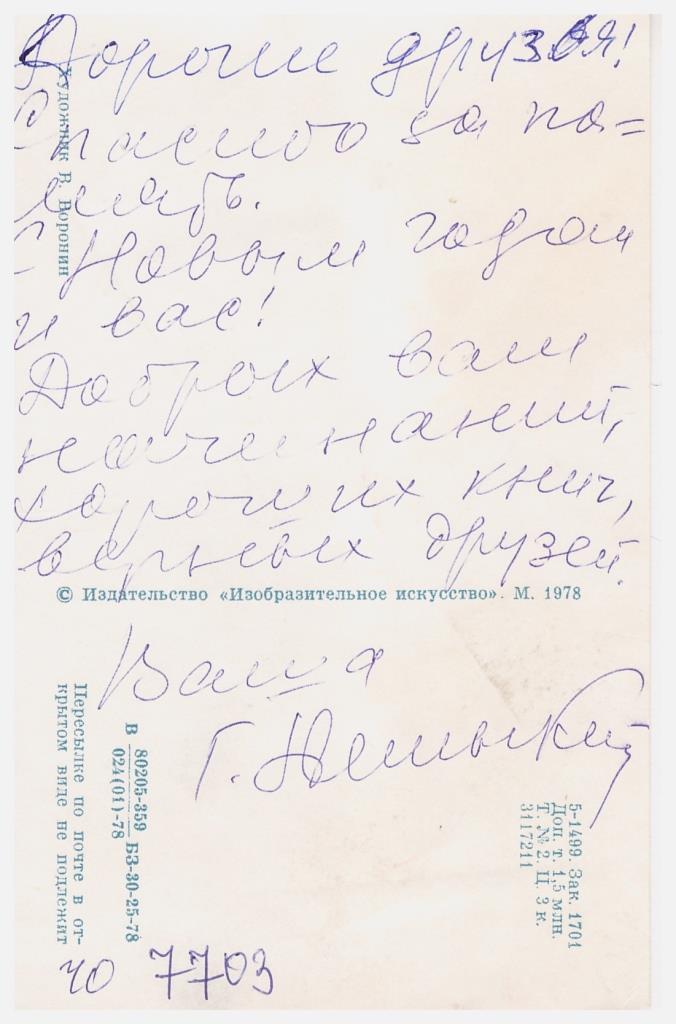 Дорогие друзья!
Спасибо за па=
мять.
С Новым годом
и вас!
Добрых вам
начинаний,
хороших книг,
верных друзей.
© Издательство «Изобразительное искусство». М. 1978
Ваша
Г.
Художник В. Воронин
Пересылке по почте в от-
крытом виде не подлежит
В 80205-359 БЗ-30-25-78
024(01)-78
5-1499. Зак. 1701
Доп. т. 1,5 млн.
Т. № 2. Ц. 3 к.
3117211
ЧО 7703